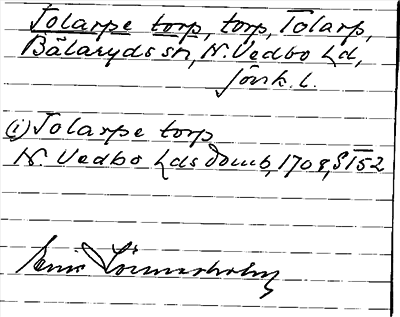 Tolarpe torp, torp, Tolarp,
Bälaryds sn, N. Vedbo hd,
Jönk. l.
(i) Tolarpe torp
N. Vedbo hds domb, 1708, S 152